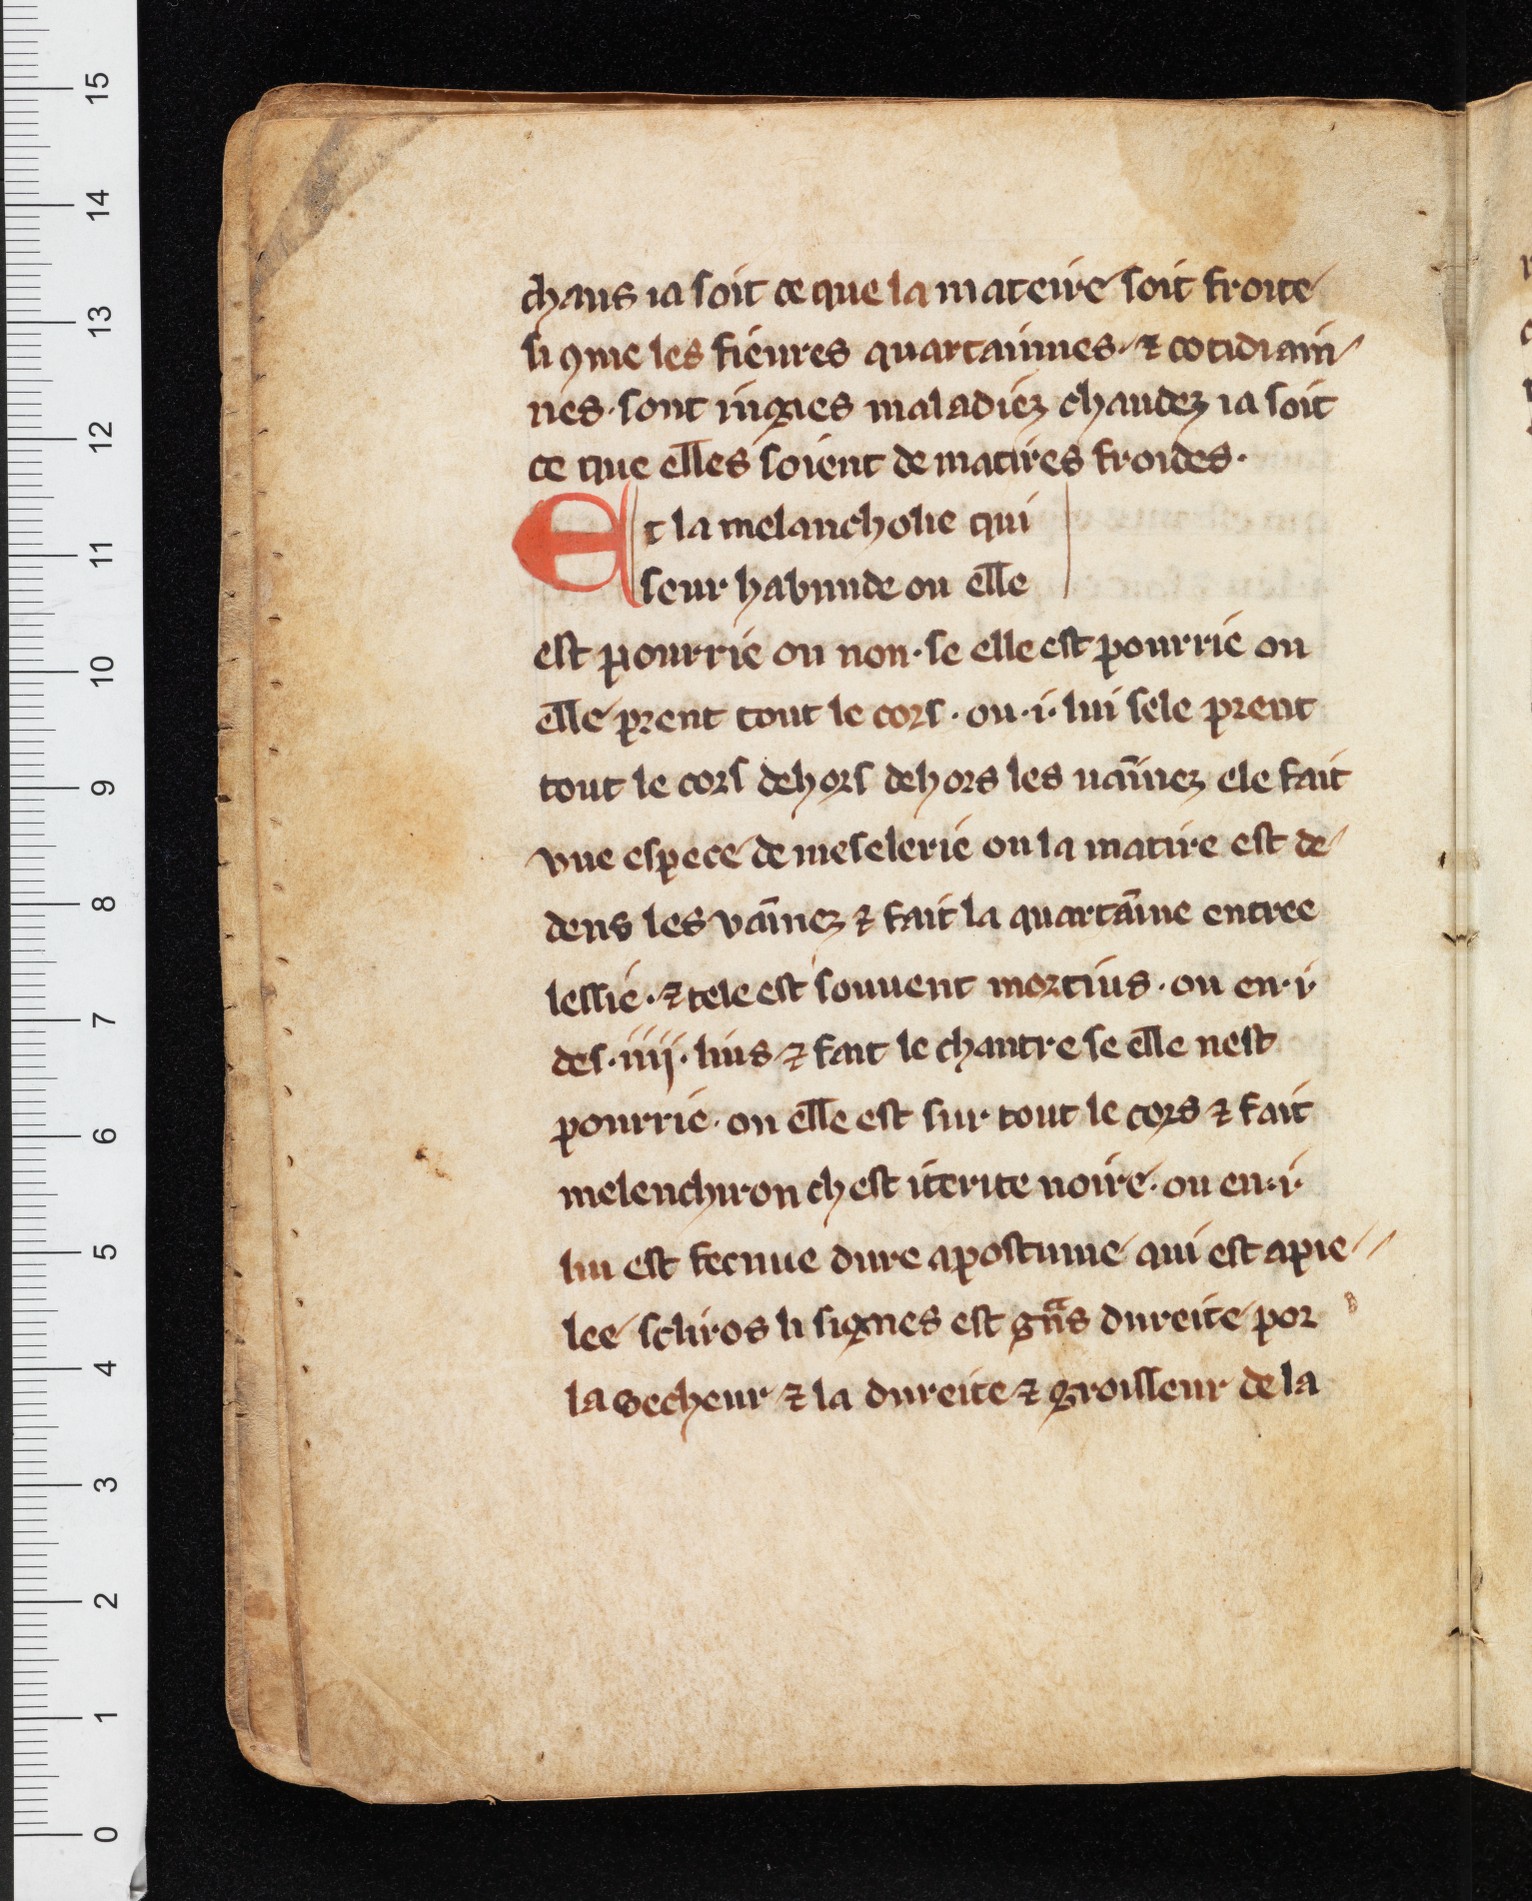 chaus ia soit ce que la mateire soit froite
si ꝯme les fieures quartainnes· ⁊ cotidiain
nes· sont iugies maladiez chaudez ia soit
ce que elles soient de matires froides·
Et la melancholie qui
seur habunde ou elle
est pourrie ou non· se elle est pourrie ou
elle prent tout le cors· ou·i· lui sele prent
tout le cors dehors dehors les uaīnez ele fait
vne espece de meselerie ou la matire est de
dens les vaīnez ⁊ fait la quartāine entree
lessie· ⁊ tele est souuent mortius· ou en·i·
des·iiij· lius ⁊ fait le chantre se elle nest
pourrie· ou elle est sur tout le cors ⁊ fait
melenchiron chest iterite noire· ou en·i·
liu est fecnue dure apostume qui est apie
lee scliros li signes est gn̄s dureite por
la secheur ⁊ la dureite ⁊ groisseur de la
15
14
13
12
11
10
9
8
7
6
5
4
3
2
1
0